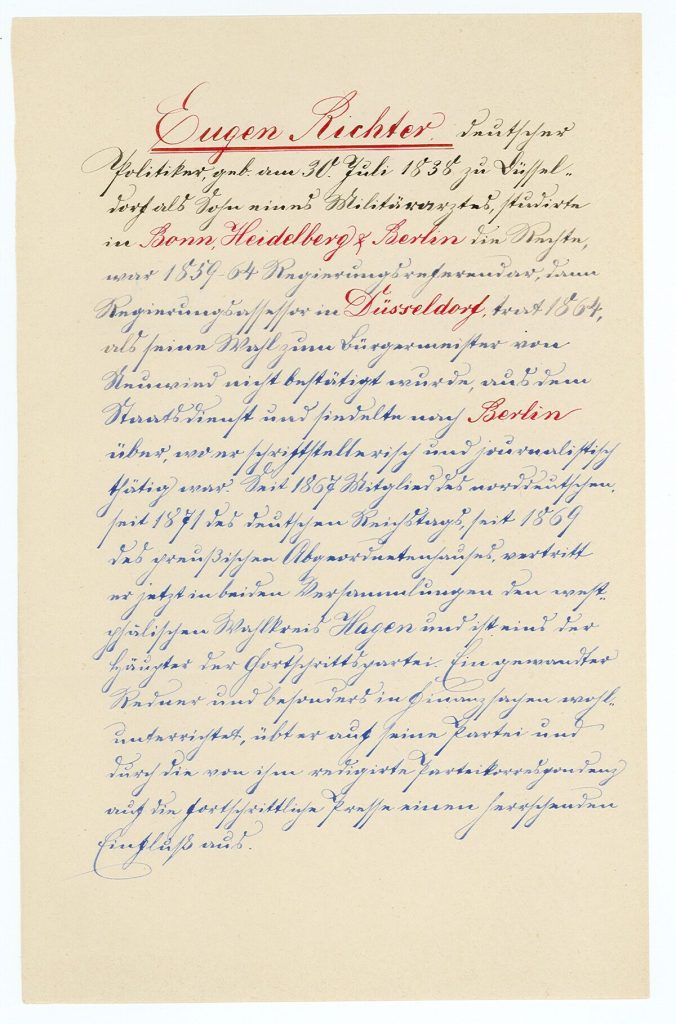 Eugen Richter. deutscher
Politiker, geb. am 30. Juli 1838 zu Düssel-
dorf als Sohn eines Militärarztes, studirte
in Bonn, Heidelberg & Berlin die Rechte,
war 1859-64 Regierungsreferendar, dann
Regierungsassessor in Düsseldorf, trat 1864,
als seine Wahl zum Bürgermeister von
Neuwied nicht bestätigt wurde, aus dem
Staatsdienst und siedelte nach Berlin
über, wo er schriftstellerisch und journalistisch
thätig war. Seit 1867 Mitglied des norddeutschen,
seit 1871 des deutschen Reichstags, seit 1869
des preußischen Abgeordnetenhauses, vertritt
er jetzt in beiden Versammlungen den west-
phälischen Wahlkreis Hagen und ist eins der
Häupter der Fortschrittspartei. Ein gewandter
Redner und besonders in Finanzsachen wohl-
unterrichtet, übt er auf seine Partei und
durch die von ihm redigirte Parteikorrespondenz
auf die fortschrittliche Presse einen herrschenden
Einfluß aus.